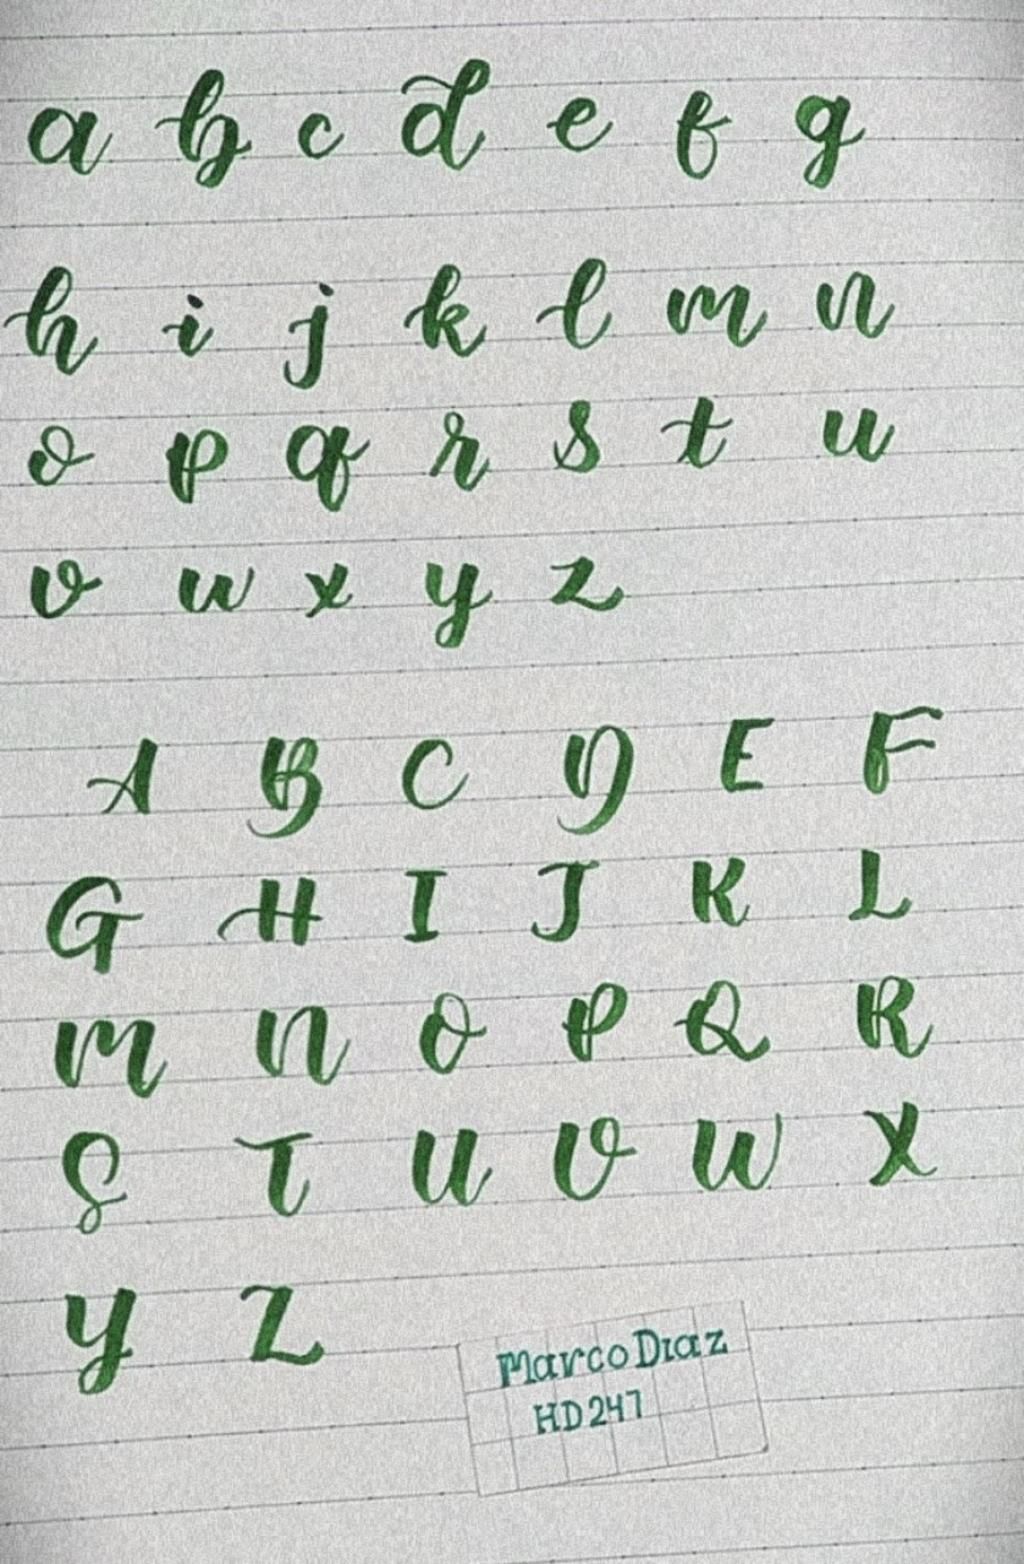 a b c d e f g
h i j k l m n
o p q r s t u
v w x y z
A B C D E F
G H I J K L
M N O P Q R
S T U V W X
Y Z
Marco Diaz
HD247